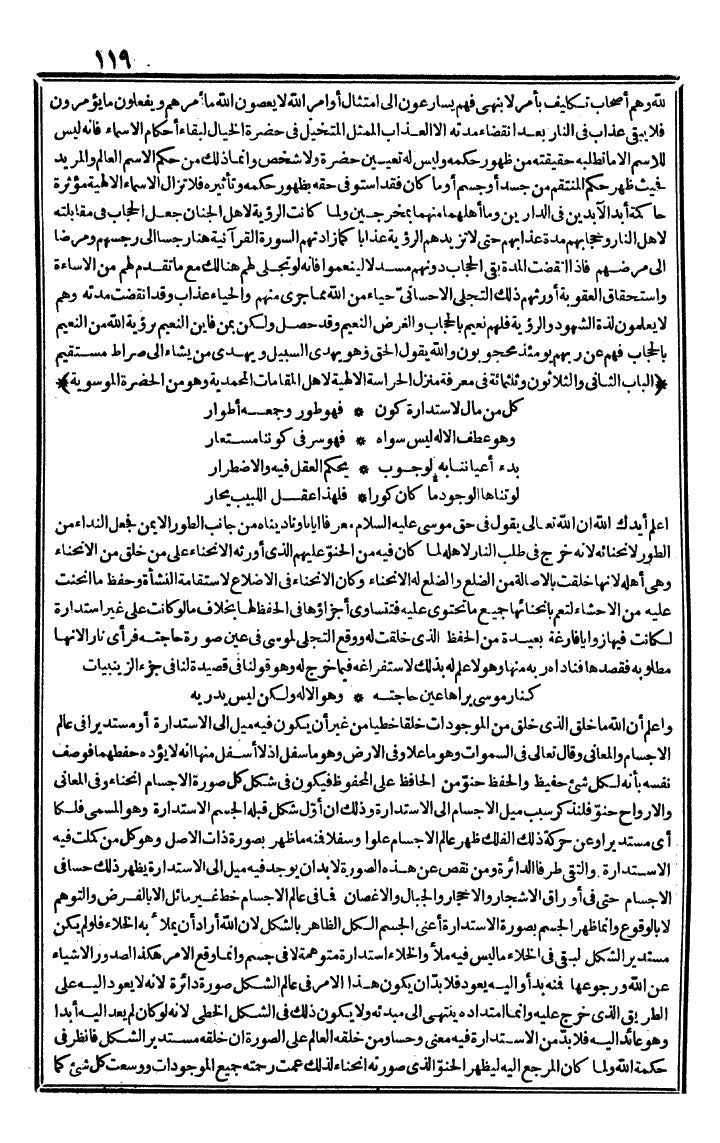 ١١٩
لله وهم أصحاب تكاليف بأمر لا بنهى فهم يسارعون الى امتثال أوامر الله لا يعصون الله ما أمرهم ويفعلون ما يؤمرون
فلا يبقى عذاب فى النار بعد انقضاء مدته الا العذاب الممثل المتخيل فى حضرة الخيال لبقاء أحكام الاسماء فانه ليس
للاسم الا ما تطلبه حقيقته من ظهور حكمه وليس له تعيين حضرة ولا شخص وانما ذلك من حكم الاسم العالم والمريد
فحيث ظهر حكم المنتقم من جسد أو جسم أو ما كان فقد استوفى حقه بظهور حكمه وتأثيره فلا تزال الاسماء الالهية مؤثرة
حاكمة أبد الآبدين فى الدارين وما أهلهما منهما بمخرجين ولما كانت الرؤية لاهل الجنان جعل الحجاب فى مقابلته
لاهل النار وحجابهم مدة عذابهم حتى لا تزيدهم الرؤية عذابا كما زادتهم السورة القرآنية هنا رجسا الى رجسهم ومرضا
الى مرضهم فاذا انقضت المدة بقى الحجاب دونهم مسدلا لينعموا فانه لو تجلى لهم هنالك مع ما تقدم لهم من الاساءة
واستحقاق العقوبة أورثهم ذلك التجلى الاحسانى حياء من الله مما جرى منهم والحياء عذاب وقد انقضت مدته وهم
لا يعلمون لذة الشهود والرؤية فلهم نعيم بالحجاب والغرض النعيم وقد حصل ولكن بمن فاين النعيم برؤية الله من النعيم
بالحجاب فهم عن ربهم يومئذ محجوبون والله يقول الحق وهو يهدى السبيل ويهدى من يشاء الى صراط مستقيم
﴿الباب الثانى والثلاثون وثلثمائة فى معرفة منزل الحراسة الالهية لاهل المقامات المحمدية وهو من الحضرة الموسوية﴾
كل من مال لاستدارة كون * فهو طور وجمعه أطوار
وهو عطف الاله ليس سواه * فهو سر فى كوننا مستعار
بدء أعياننا به لوجوب * يحكم العقل فيه والاضطرار
لو تناها الوجود ما كان كورا * فلهذا عقل اللبيب يحار
اعلم أيدك الله ان الله تعالى يقول فى حق موسى عليه السلام معرفا ايانا وناديناه من جانب الطور الايمن فجعل النداء من
الطور لانحنائه لانه خرج فى طلب النار لاهله لما كان فيه من الحنو عليهم الذى أورثه الانحناء على من خلق من الانحناء
وهى أهله لانها خلقت بالاصالة من الضلع والضلع له الانحناء وكان الانحناء فى الاضلاع لاستقامة النشأة وحفظ ما انحنت
عليه من الاحشاء لتعم بانحنائها جميع ما تحتوى عليه فتتساوى أجزاؤها فى الحفظ لها بخلاف ما لو كانت على غير استدارة
لكانت فيها زوايا فارغة بعيدة من الحفظ الذى خلقت له ووقع التجلى لموسى فى عين صورة حاجته فرأى نارا لانها
مطلوبه فقصدها فناداه ربه منها وهو لا علم له بذلك لاستفراغه فيما خرج له وهو قولنا فى قصيدة لنا فى جزء الزينبيات
كنار موسى يراها عين حاجته * وهو الاله ولكن ليس يدريه
واعلم أن الله ما خلق الذى خلق من الموجودات خلقا خطيا من غير أن يكون فيه ميل الى الاستدارة أو مستديرا فى عالم
الاجسام والمعانى وقال تعالى فى السموات وهو ما علا وفى الارض وهو ما سفل اذ لا أسفل منها انه لا يؤده حفظهما فوصف
نفسه بأنه لكل شئ حفيظ والحفظ حنو من الحافظ على المحفوظ فيكون فى شكل كل صورة الاجسام انحناء وفى المعانى
والارواح حنو فلنذكر سبب ميل الاجسام الى الاستدارة وذلك ان أول شكل قبله الجسم الاستدارة وهو المسمى فلكا
أى مستديرا وعن حركة ذلك الفلك ظهر عالم الاجسام علوا وسفلا فمنه ما ظهر بصورة ذات الاصل وهو كل من كملت فيه
الاستدارة والتقى طرفا الدائرة ومن نقص عن هذه الصورة لا بد ان يوجد فيه ميل الى الاستدارة يظهر ذلك حسا فى
الاجسام حتى فى أوراق الاشجار والاحجار والجبال والاغصان فما فى عالم الاجسام خط غير مائل الا بالفرض والتوهم
لا بالوقوع وانما ظهر الجسم بصورة الاستدارة أعنى الجسم الكل الظاهر بالشكل لان الله أراد أن يملأ به الخلاء فلو لم يكن
مستدير الشكل لبقى فى الخلاء ما ليس فيه ملأ والخلاء استدارة متوهمة لا فى جسم وانما وقع الامر هكذا لصدور الاشياء
عن الله ورجوعها فمنه بدأ واليه يعود فلا بد أن يكون هذا الامر فى عالم الشكل صورة دائرة لانه لا يعود اليه على
الطريق الذى خرج عليه وانما امتداده ينتهى الى مبدئه ولا يكون ذلك فى الشكل الخطى لانه لو كان لم يعد اليه أبدا
وهو عائد اليه فلا بد من الاستدارة فيه معنى وحسا ومن خلقه العالم على الصورة ان خلقه مستدير الشكل فانظر فى
حكمة الله ولما كان المرجع اليه ليظهر الحنو الذى صورته انحناء لذلك عمت رحمته جميع الموجودات ووسعت كل شئ كما